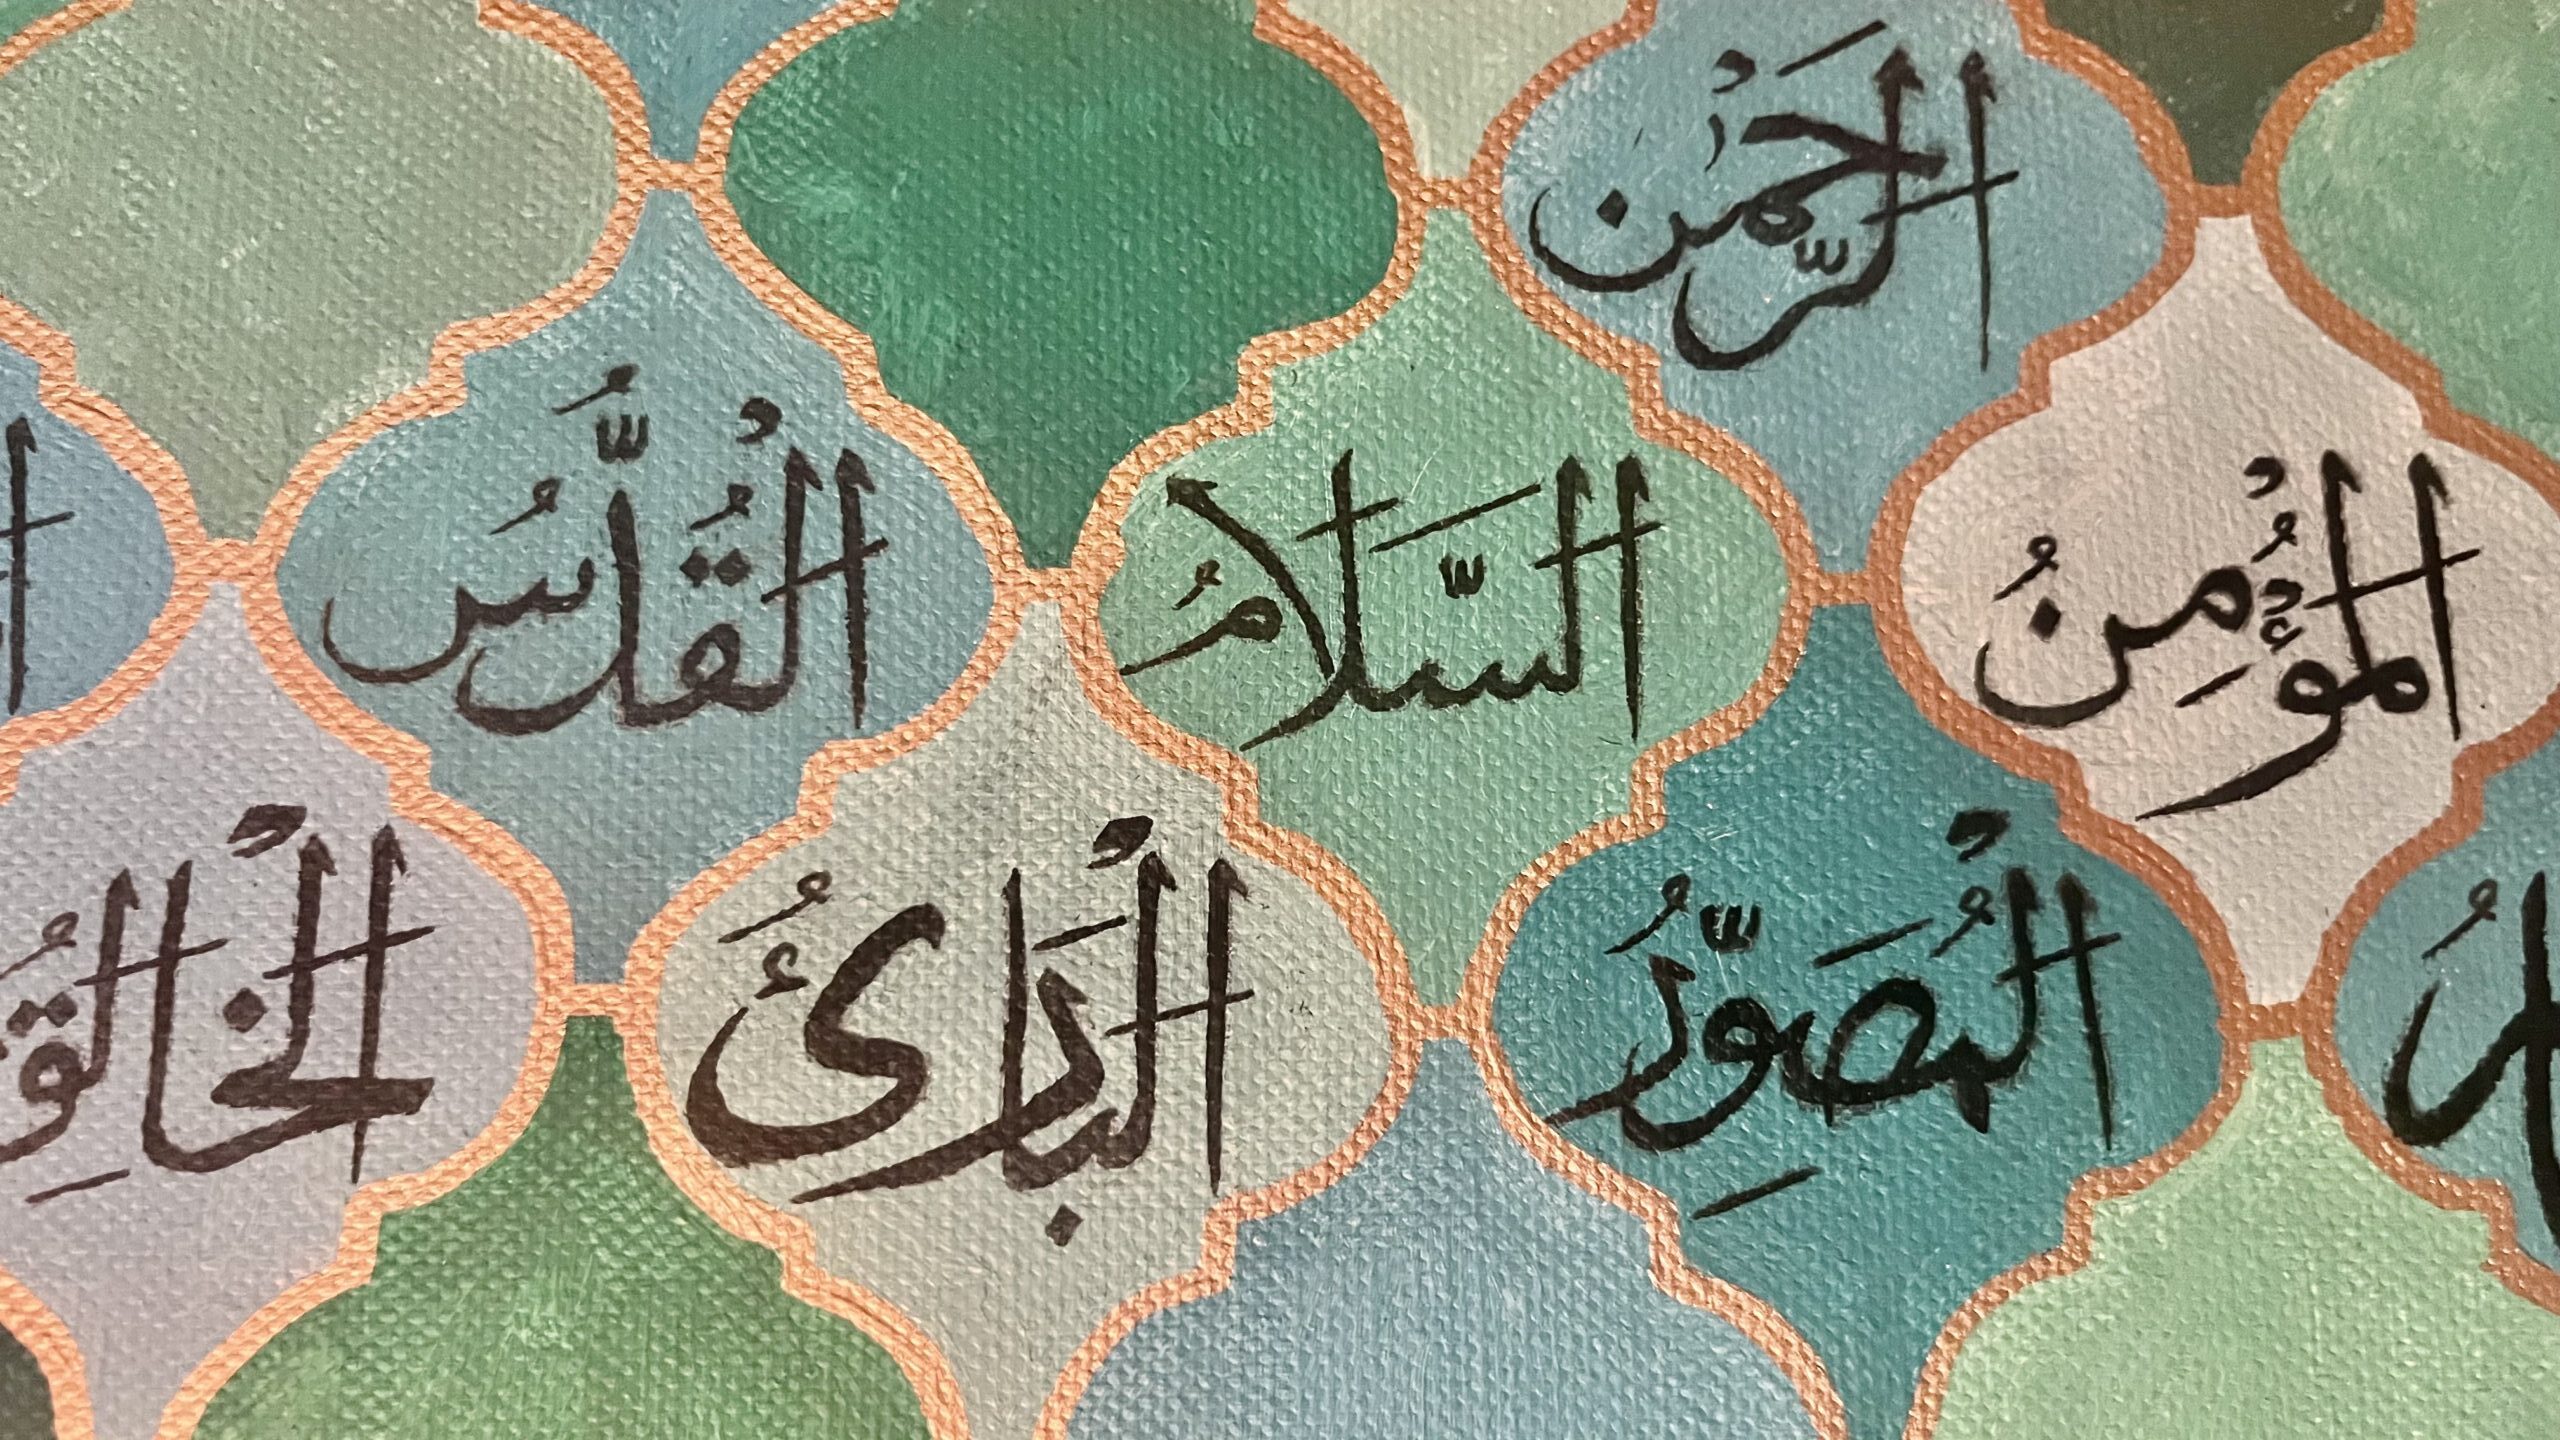 الرَّحْمَنُ
الْمُؤْمِنُ السَّلَامُ الْقُدُّسُ
الْمُصَوِّرُ الْبَارِئُ الْخَالِقُ